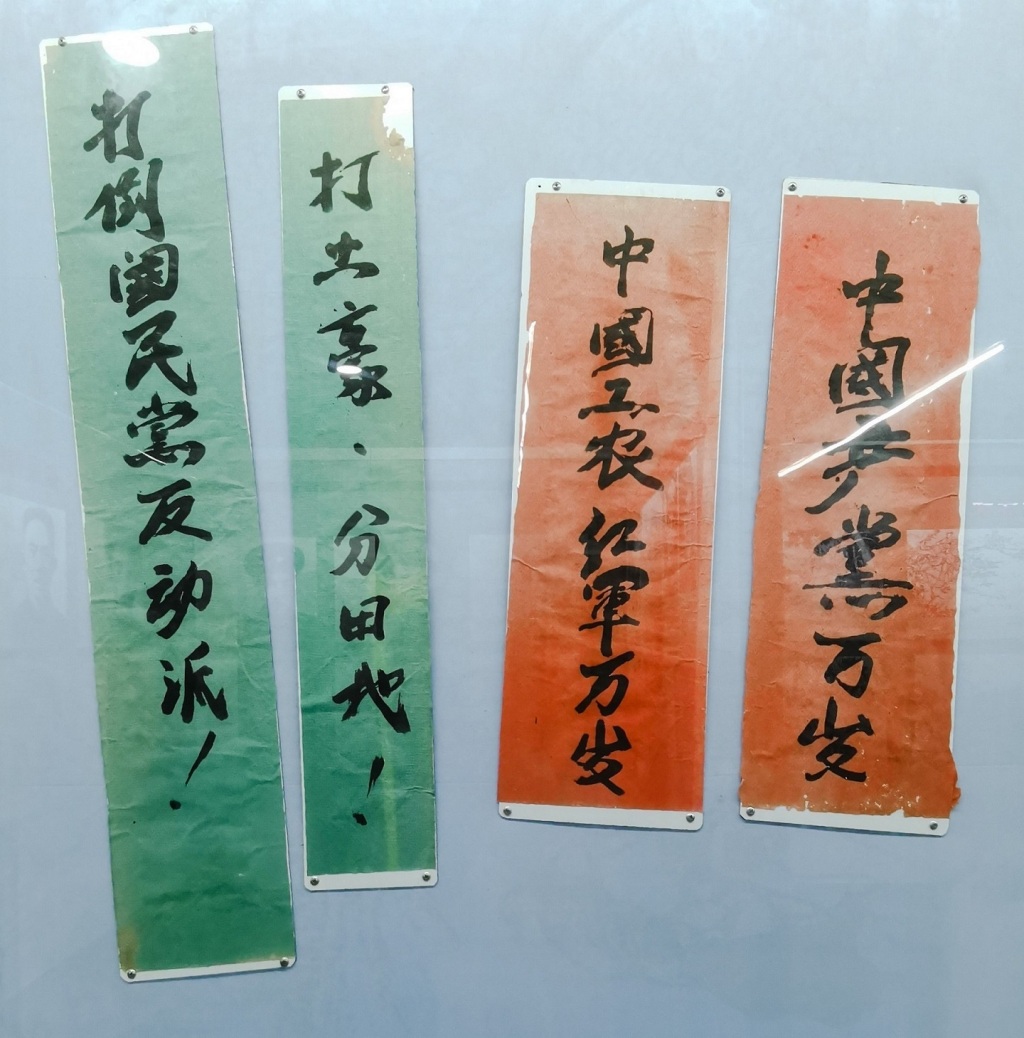 打倒国民黨反动派！
打土豪、分田地！
中國工农红軍万岁
中國共产黨万岁